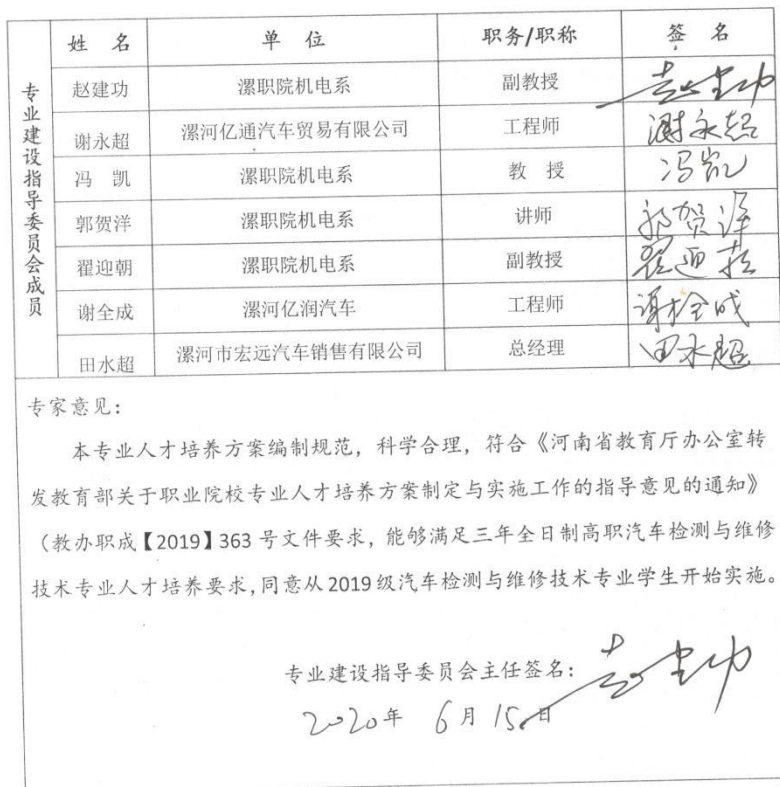 专业建设指导委员会成员
姓 名 单 位 职务/职称 签 名
赵建功 漯职院机电系 副教授 赵建功
谢永超 漯河亿通汽车贸易有限公司 工程师 谢永超
冯 凯 漯职院机电系 教 授 冯凯
郭贺洋 漯职院机电系 讲师 郭贺洋
翟迎朝 漯职院机电系 副教授 翟迎朝
谢全成 漯河亿润汽车 工程师 谢全成
田水超 漯河市宏远汽车销售有限公司 总经理 田水超
专家意见：
本专业人才培养方案编制规范，科学合理，符合《河南省教育厅办公室转
发教育部关于职业院校专业人才培养方案制定与实施工作的指导意见的通知》
（教办职成【2019】363 号文件要求，能够满足三年全日制高职汽车检测与维修
技术专业人才培养要求,同意从 2019 级汽车检测与维修技术专业学生开始实施。
专业建设指导委员会主任签名：赵建功
2020年 6月 15日